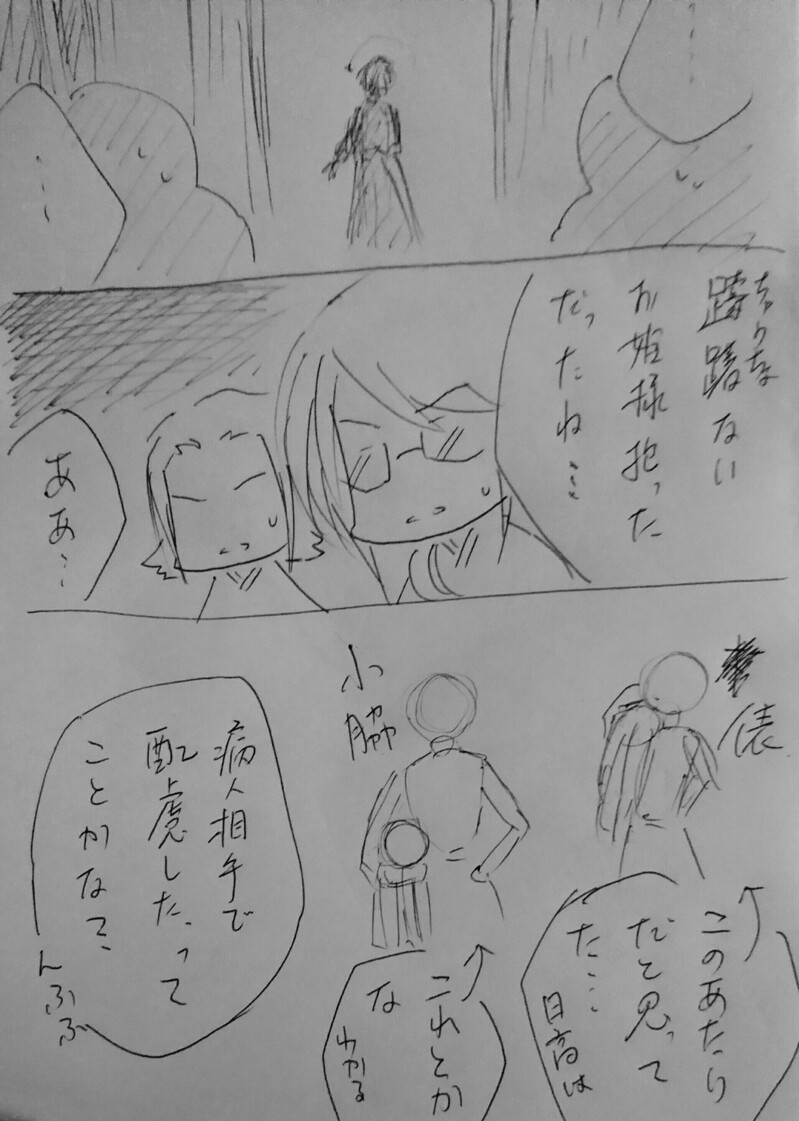 ……
……
ちゅうちょ
躊躇ない
お姫様抱っこ
だったね…
ああ…
俵
このあたり
だと思って
た…
日高は
小脇
これとか
な
わかる
病人相手で
配慮した、って
ことかなて、
んふふ